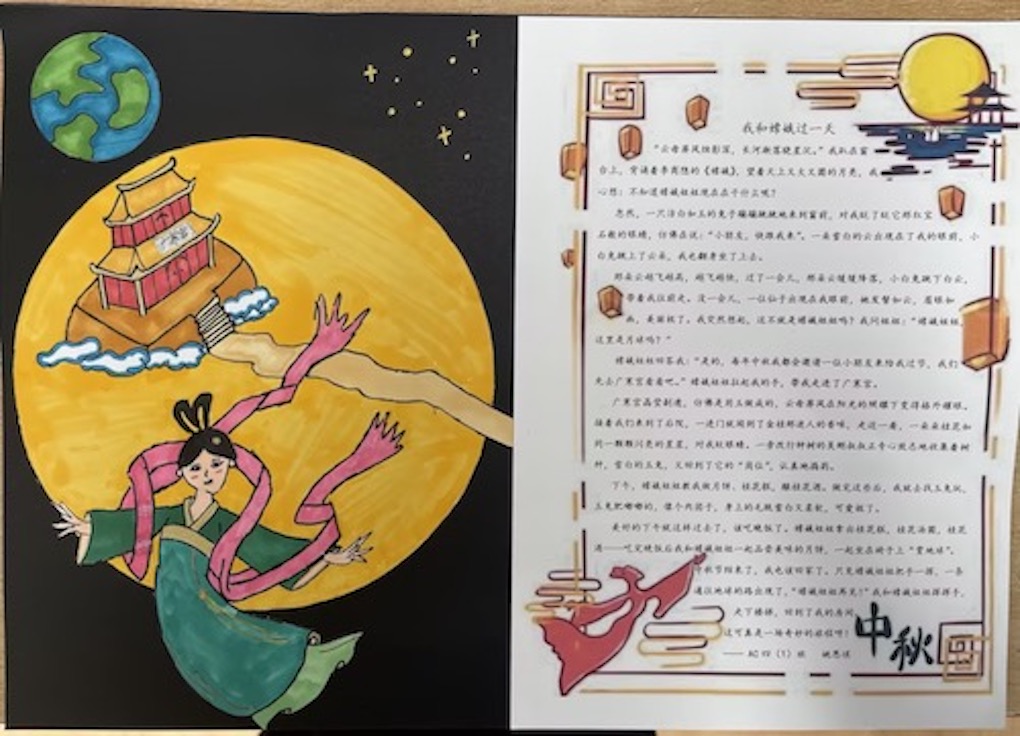 我和嫦娥过一天
“云母屏风烛影深，长河渐落晓星沉。”我趴在窗
台上，背诵着李商隐的《嫦娥》，望着天上又大又圆的月亮，我
心想：不知道嫦娥姐姐现在在干什么呢？
忽然，一只洁白如玉的兔子蹦蹦跳跳地来到窗前，对我眨了眨它那红宝
石般的眼睛，仿佛在说：“小朋友，快跟我来”。一朵雪白的云出现在了我的眼前，小
白兔跳上了云朵，我也翻身坐了上去。
那朵云越飞越高，越飞越快，过了一会儿，那朵云缓缓降落，小白兔跳下白云，
带着我往前走，没一会儿，一位仙子出现在我眼前，她发髻如云，眉眼如
画，美丽极了。我突然想起，这不就是嫦娥姐姐吗？我问姐姐：“嫦娥姐姐，
这里是月球吗？”
嫦娥姐姐回答我：“是的，每年中秋我都会邀请一位小朋友来给我过节，我们
先去广寒宫看看吧。”嫦娥姐姐拉起我的手，带我走进了广寒宫。
广寒宫晶莹剔透，仿佛是用玉做成的，云母屏风在阳光的照耀下变得格外耀眼。
接着我们来到了后院，一进门就闻到了金桂那迷人的香味，走近一看，一朵朵桂花如
同一颗颗闪亮的星星，对我眨眼睛。一旁改行种树的吴刚叔叔正专心致志地收集着树
种，雪白的玉兔，又回到了它的“岗位”，认真地捣药。
下午，嫦娥姐姐教我做月饼、桂花糕，酿桂花酒。做完这些后，我就去找玉兔玩，
玉兔肥嘟嘟的，像个肉团子，身上的毛既雪白又柔软，可爱极了。
美好的下午就这样过去了，该吃晚饭了。嫦娥姐姐拿出桂花糕，桂花汤圆，桂花
酒——吃完晚饭后我和嫦娥姐姐一起品尝美味的月饼，一起坐在树于上“赏地球”。
中秋节结束了，我也该回家了。只见嫦娥姐姐把手一挥，一条
通往地球的路出现了，“嫦娥姐姐再见！”我和嫦娥姐姐挥挥手，
走下楼梯，回到了我的房间
这可真是一场奇妙的旅程呀！
—— AC四（1）班 姚思
中秋